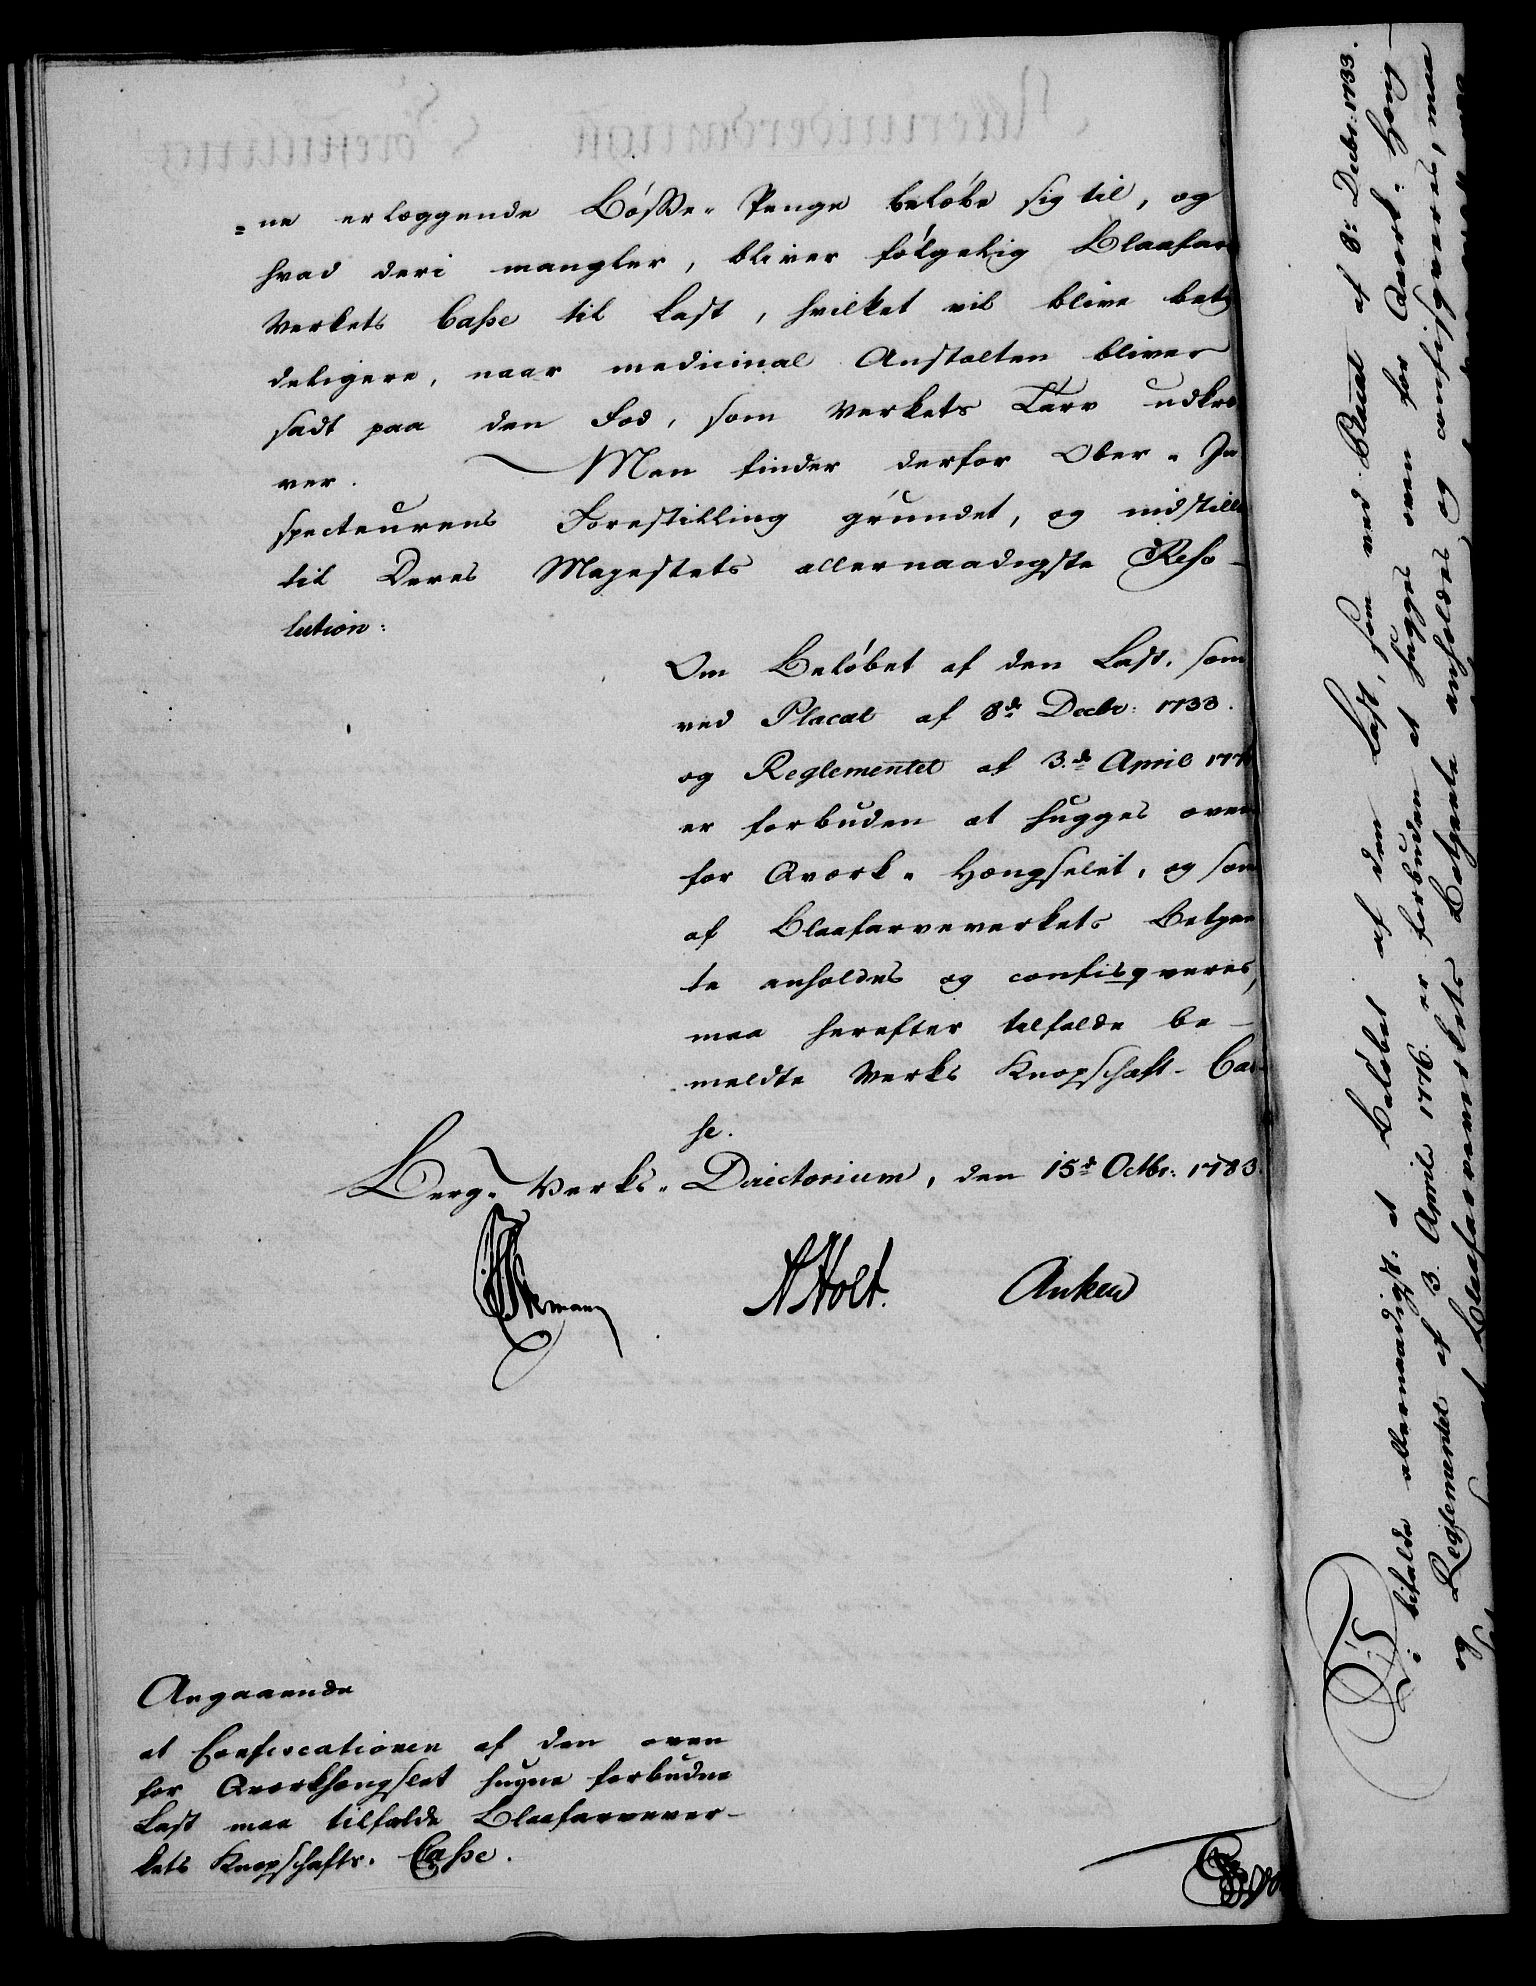 =ne erlæggende Bösse-Penge belöbe sig til, og
hvad deri mangler, bliver fölgelig Blaafar
Verkets Casse til Last, hvilket vil blive bety
deligere, naar medicinal Anstalten bliver
sadt paa den Fod, som Verkets Tarv udkræ
ver. Man finder derfor Ober-In
specteurens Forestilling grundet, og indstille
til Deres Majestets allernaadigste Reso-
lution:
Om Belöbet af den Last, som
ved Placat af 8de Decbr: 1733.
og Reglementet af 3de April 1776
er forbuden at hugges oven
for Qværk-Hængselet, og som
af Blaafarveverkets Betjen
te anholdes og confisqveres,
maa herefter tilfalde be-
meldte Verks Knapschaft-Cas-
se.
Berg-Verks-Directorium, den 15de Octbr: 1783.
A Holt. Anker
Angaaende
at Confiscationen af den oven
for Qværkhængslet hugne forbudne
Last maa tilfalde Blaafarvever-
kets Knapschafts-Casse.
Vi bifalde allernaadigst: at Belöbet af den Last, som ved Placat af 8de Decbr: 1733.
og Reglementet af 3. April 1776. er forbuden at hugges oven for Qværk-Hæng-
Blaafarveverkets Betjente anholdes og confisqveres, maa